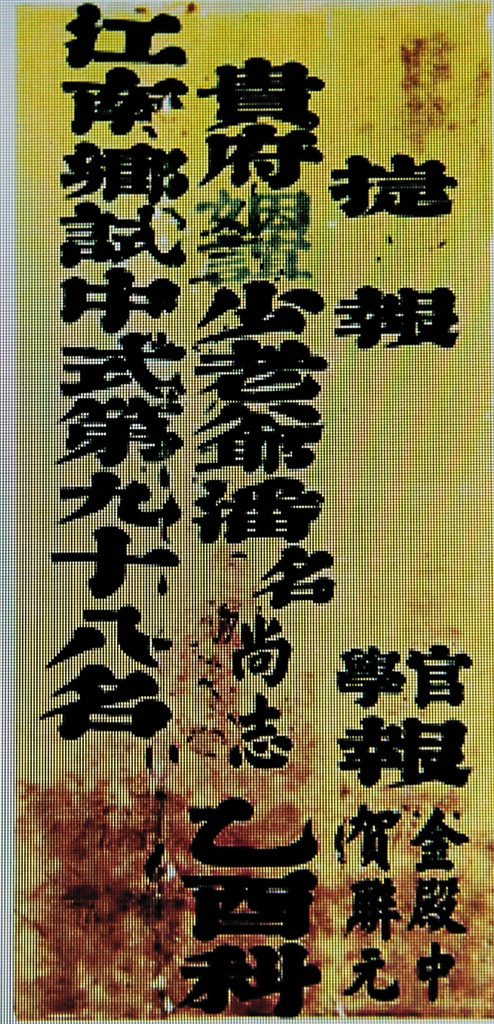 捷報
官學報
金殿中
賀聯元
貴府姻誼少老爺潘名尚志
乙酉科
江南鄉試中式第九十八名